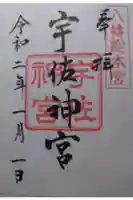 奉拝
八幡総本宮
宇佐神宮
宇佐神宮
令和二年一月一日